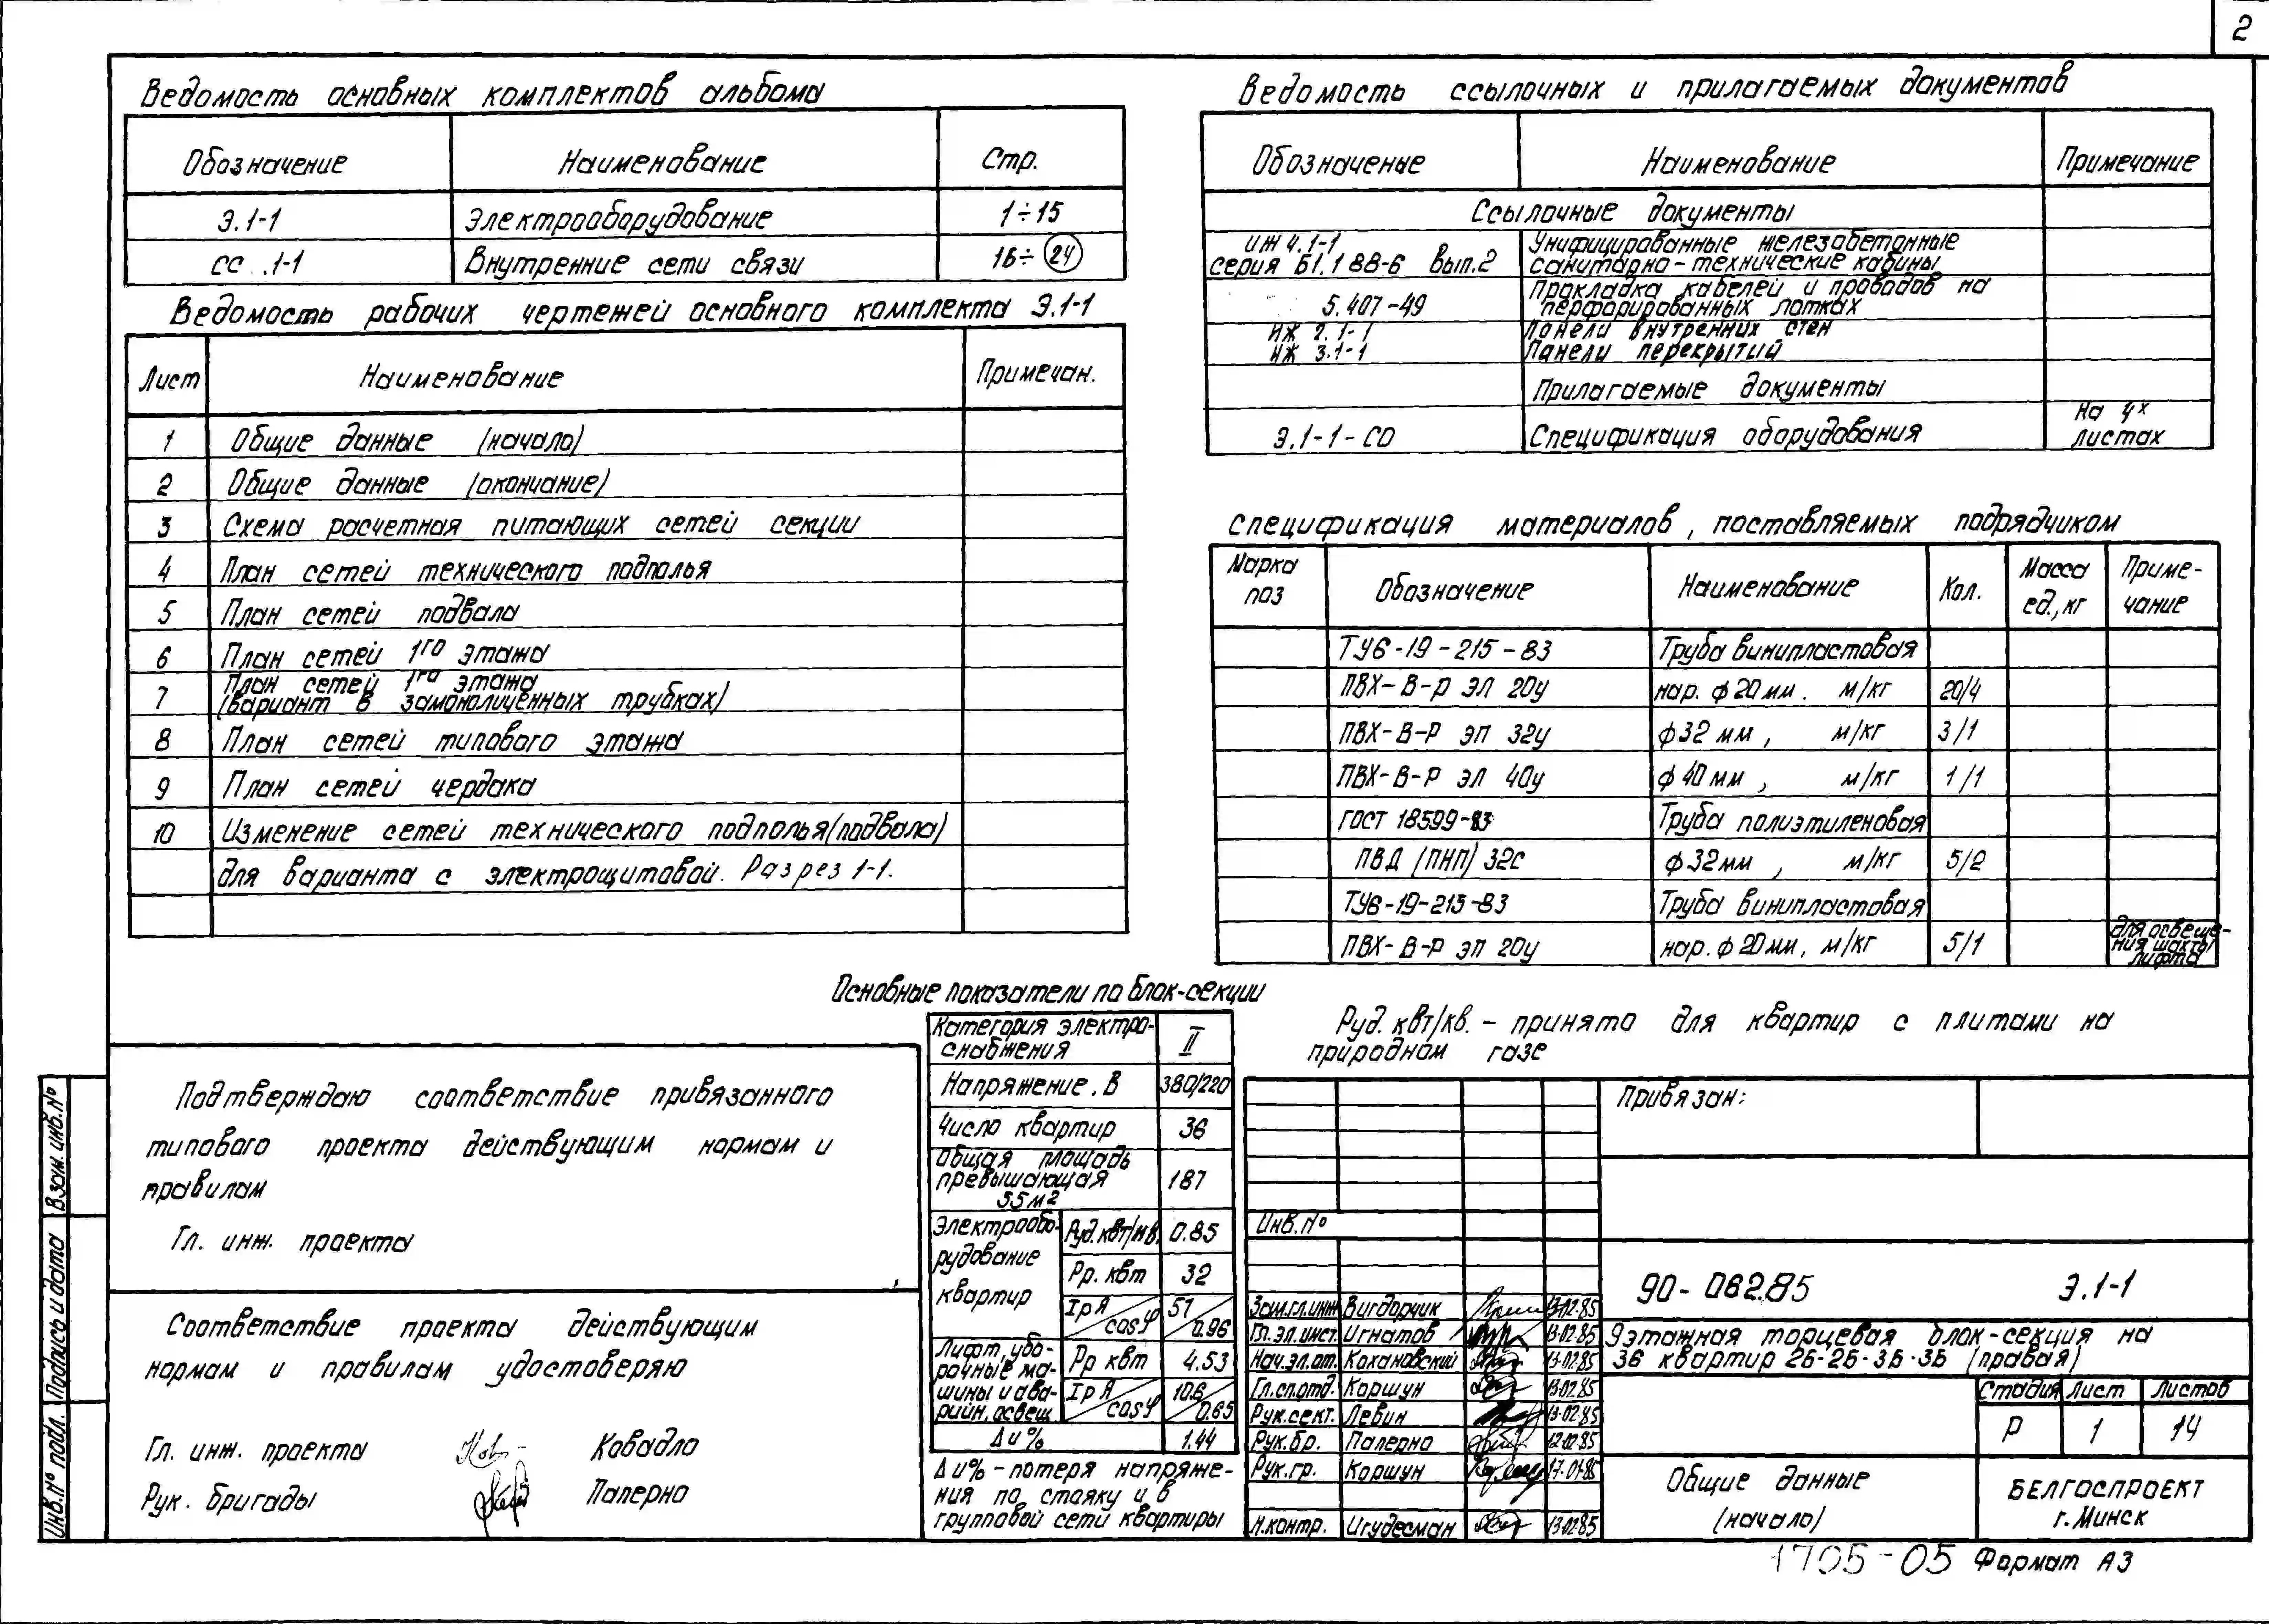 2
Ведомость основных комплектов альбома
Обозначение Наименование Стр.
Э.1-1 Электрооборудование 1÷15
СС..1-1 Внутренние сети связи 16÷ 24
Ведомость рабочих чертежей основного комплекта Э.1-1
Лист Наименование Примечан.
1 Общие данные (начало)
2 Общие данные (окончание)
3 Схема расчетная питающих сетей секции
4 План сетей технического подполья
5 План сетей подвала
6 План сетей 1го этажа
7 План сетей 1го этажа
(вариант в замоноличенных трубках)
8 План сетей типового этажа
9 План сетей чердака
10 Изменение сетей технического подполья(подвала)
для варианта с электрощитовой. Разрез 1-1.
Ведомость ссылочных и прилагаемых документов
Обозначение Наименование Примечание
Ссылочные документы
ИЖ 4.1-1 Унифицированные железобетонные
серия Б1.188-6 Вып.2 санитарно-технические кабины
5.407-49 Прокладка кабелей и проводов на
перфорированных лотках
ИЖ 2.1-1 Панели внутренних стен
ИЖ 3.1-1 Панели перекрытий
Прилагаемые документы
Э.1-1-СО Спецификация оборудования На 4х
листах
Спецификация материалов, поставляемых подрядчиком
Марка поз Обозначение Наименование Кол. Масса ед.,кг Приме-
чание
ТУ6-19-215-83 Труба винипластовая
ПВХ-В-Р ЭЛ 20у нар. ф20мм. м/кг 20/4
ПВХ-В-Р ЭП 32у ф32 мм, м/кг 3/1
ПВХ-В-Р ЭЛ 40у ф40мм, м/кг 1/1
ГОСТ 18599-83 Труба полиэтиленовая
ПВД (ПНП) 32С ф32мм, м/кг 5/2
ТУ6-19-215-83 Труба винипластовая
ПВХ-В-Р ЭП 20у нар. ф20мм, м/кг 5/1 для освеще-
ния шахты
лифта
Основные показатели по блок-секции
Категория электро-
снабжения II
Напряжение. В 380/220
Число квартир 36
Общая площадь
превышающая
55м2 187
Электрообо-
рудование
квартир
Руд.квт/кв. 0.85
Рр. квт 32
Iр А/cosφ 57/0.96
Лифт, убо-
рочные ма-
шины и ава-
рийн. освещ.
Рр квт 4.53
Iр А/cosφ 10.6/0.65
Δu% 1.44
Δu% - потеря напряже-
ния по стояку и в
групповой сети квартиры
Руд. квт/кв. - принято для квартир с плитами на
природном газе
Подтверждаю соответствие привязанного
типового проекта действующим нормам и
правилам
Гл. инж. проекта
Соответствие проекта действующим
нормам и правилам удостоверяю
Гл. инж. проекта Ковадло
Рук. бригады Палерно
Взам. инв. №
Подпись и дата
Инв. № подл.
Привязан:
Инв. №
90-062.85 Э.1-1
Зам.гл.инж Вигдорчик 13.02.85
Гл.эл.инст. Игнатов 13.02.85
Нач.эл.от. Кохановский 13.02.85
Гл.сп.отд. Коршун 13.02.85
Рук.сект. Левин 13.02.85
Рук.бр. Палерно 12.02.85
Рук.гр. Коршун 17.01.85
Н.контр. Игудесман 13.02.85
9этажная торцевая блок-секция на
36 квартир 2Б-2Б-3Б-3Б (правая)
Стадия Лист Листов
Р 1 14
Общие данные
(начало)
БЕЛГОСПРОЕКТ
г. Минск
1705-05 Формат А3